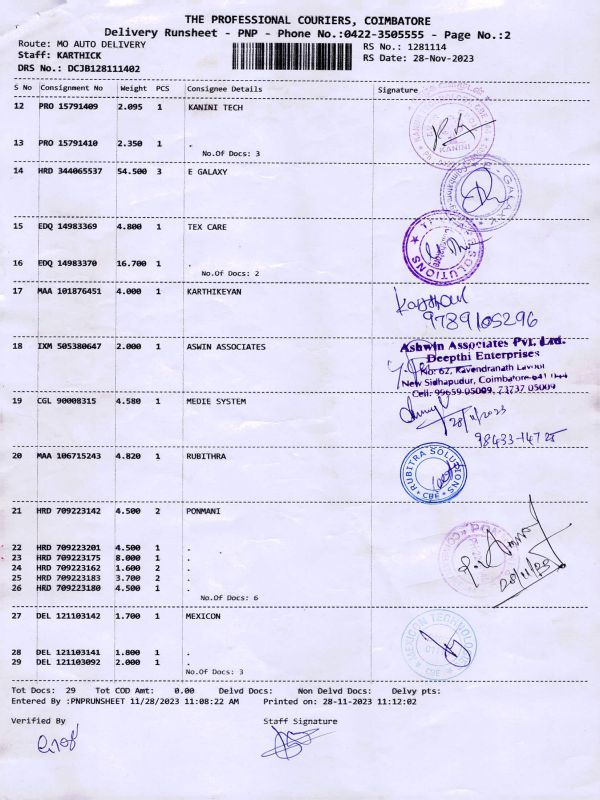 THE PROFESSIONAL COURIERS, COIMBATORE
Delivery Runsheet - PNP - Phone No.:0422-3505555 - Page No.:2
Route: MO AUTO DELIVERY RS No.: 1281114
Staff: KARTHICK RS Date: 28-Nov-2023
DRS No.: DCJB128111402
S No Consignment No Weight PCS Consignee Details Signature
12 PRO 15791409 2.095 1 KANINI TECH
KANINI
13 PRO 15791410 2.350 1 .
No.Of Docs: 3
14 HRD 344065537 54.500 3 E GALAXY
GALAXY
15 EDQ 14983369 4.800 1 TEX CARE
SOLUTIONS
16 EDQ 14983370 16.700 1 .
No.Of Docs: 2
17 MAA 101876451 4.000 1 KARTHIKEYAN
9789105296
18 IXM 505380647 2.000 1 ASWIN ASSOCIATES
Ashwin Associates Pvt. Ltd.
Deepthi Enterprises
No: 62, Ravendranath
New Sidhapudur, Coimbatore-641 044
Cell: 99659 05009, 73737 05009
19 CGL 90008315 4.580 1 MEDIE SYSTEM
28/11/2023
98433-14725
20 MAA 106715243 4.820 1 RUBITHRA
RUBITRA SOLUTIONS
CBE
21 HRD 709223142 4.500 2 PONMANI
22 HRD 709223201 4.500 1 .
23 HRD 709223175 8.000 1 .
24 HRD 709223162 1.600 2 .
25 HRD 709223183 3.700 2 .
26 HRD 709223180 4.500 1 .
28/11/23
No.Of Docs: 6
27 DEL 121103142 1.700 1 MEXICON
28 DEL 121103141 1.800 1 .
29 DEL 121103092 2.000 1 .
CBE
No.Of Docs: 3
Tot Docs: 29 Tot COD Amt: 0.00 Delvd Docs: Non Delvd Docs: Delvy pts:
Entered By :PNPRUNSHEET 11/28/2023 11:08:22 AM Printed on: 28-11-2023 11:12:02
Verified By Staff Signature